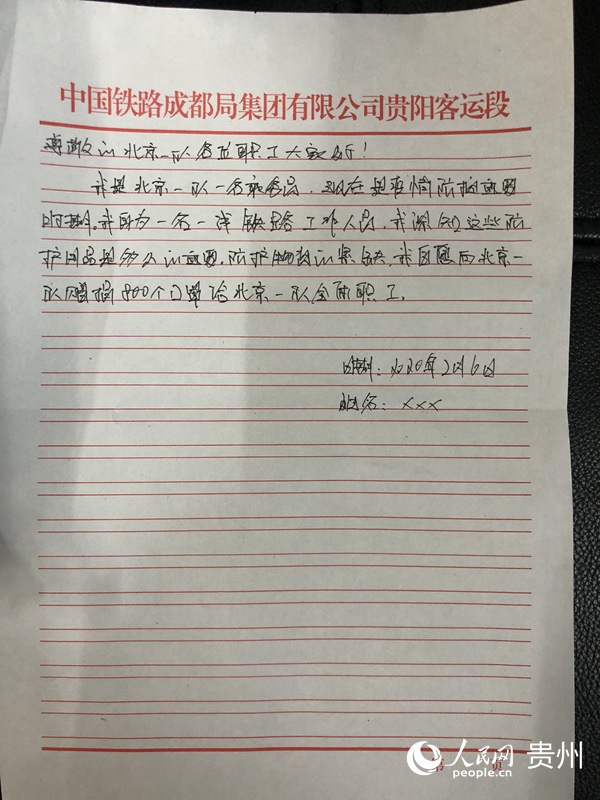 中国铁路成都局集团有限公司贵阳客运段
尊敬的北京一队各位职工大家好！
我是北京一队一名乘务员，现在是疫情防控重要
时期。我身为一名一洋铁路工作人员，我深知这些防
护用品是多么的重要，防护物资的紧缺，我自愿向北京一
队捐赠800个口罩给北京一队全体职工。
日期：2020年2月6日
姓名：xxx
第 页
人民网 贵州
people.cn